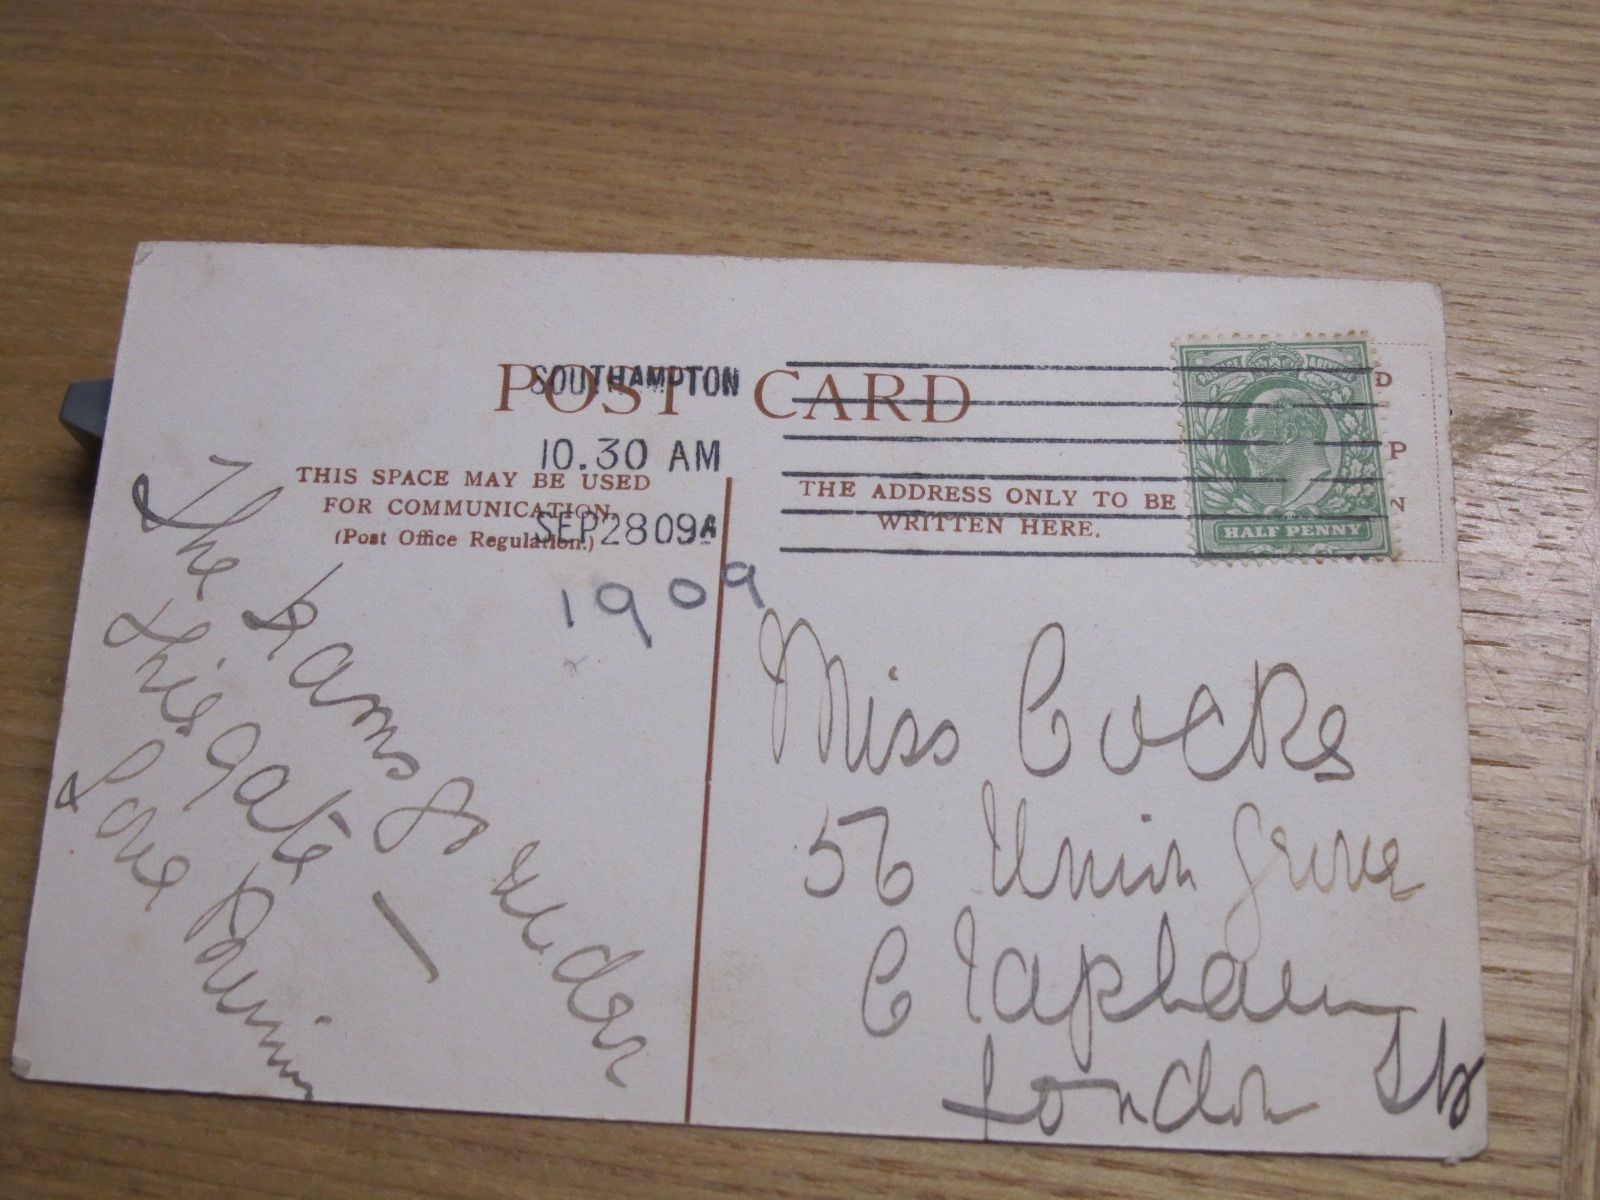 POST CARD
SOUTHAMPTON
10.30 AM
SEP 28 09 A
THIS SPACE MAY BE USED
FOR COMMUNICATION.
(Post Office Regulation.)
THE ADDRESS ONLY TO BE
WRITTEN HERE.
HALF PENNY
D
P
N
1909
The trams go under
this gate —
Love
Miss Cocks
56 Union Grove
Clapham
London SW